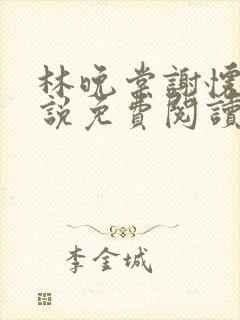 林晚棠謝懷
說免費閱讀
李金城